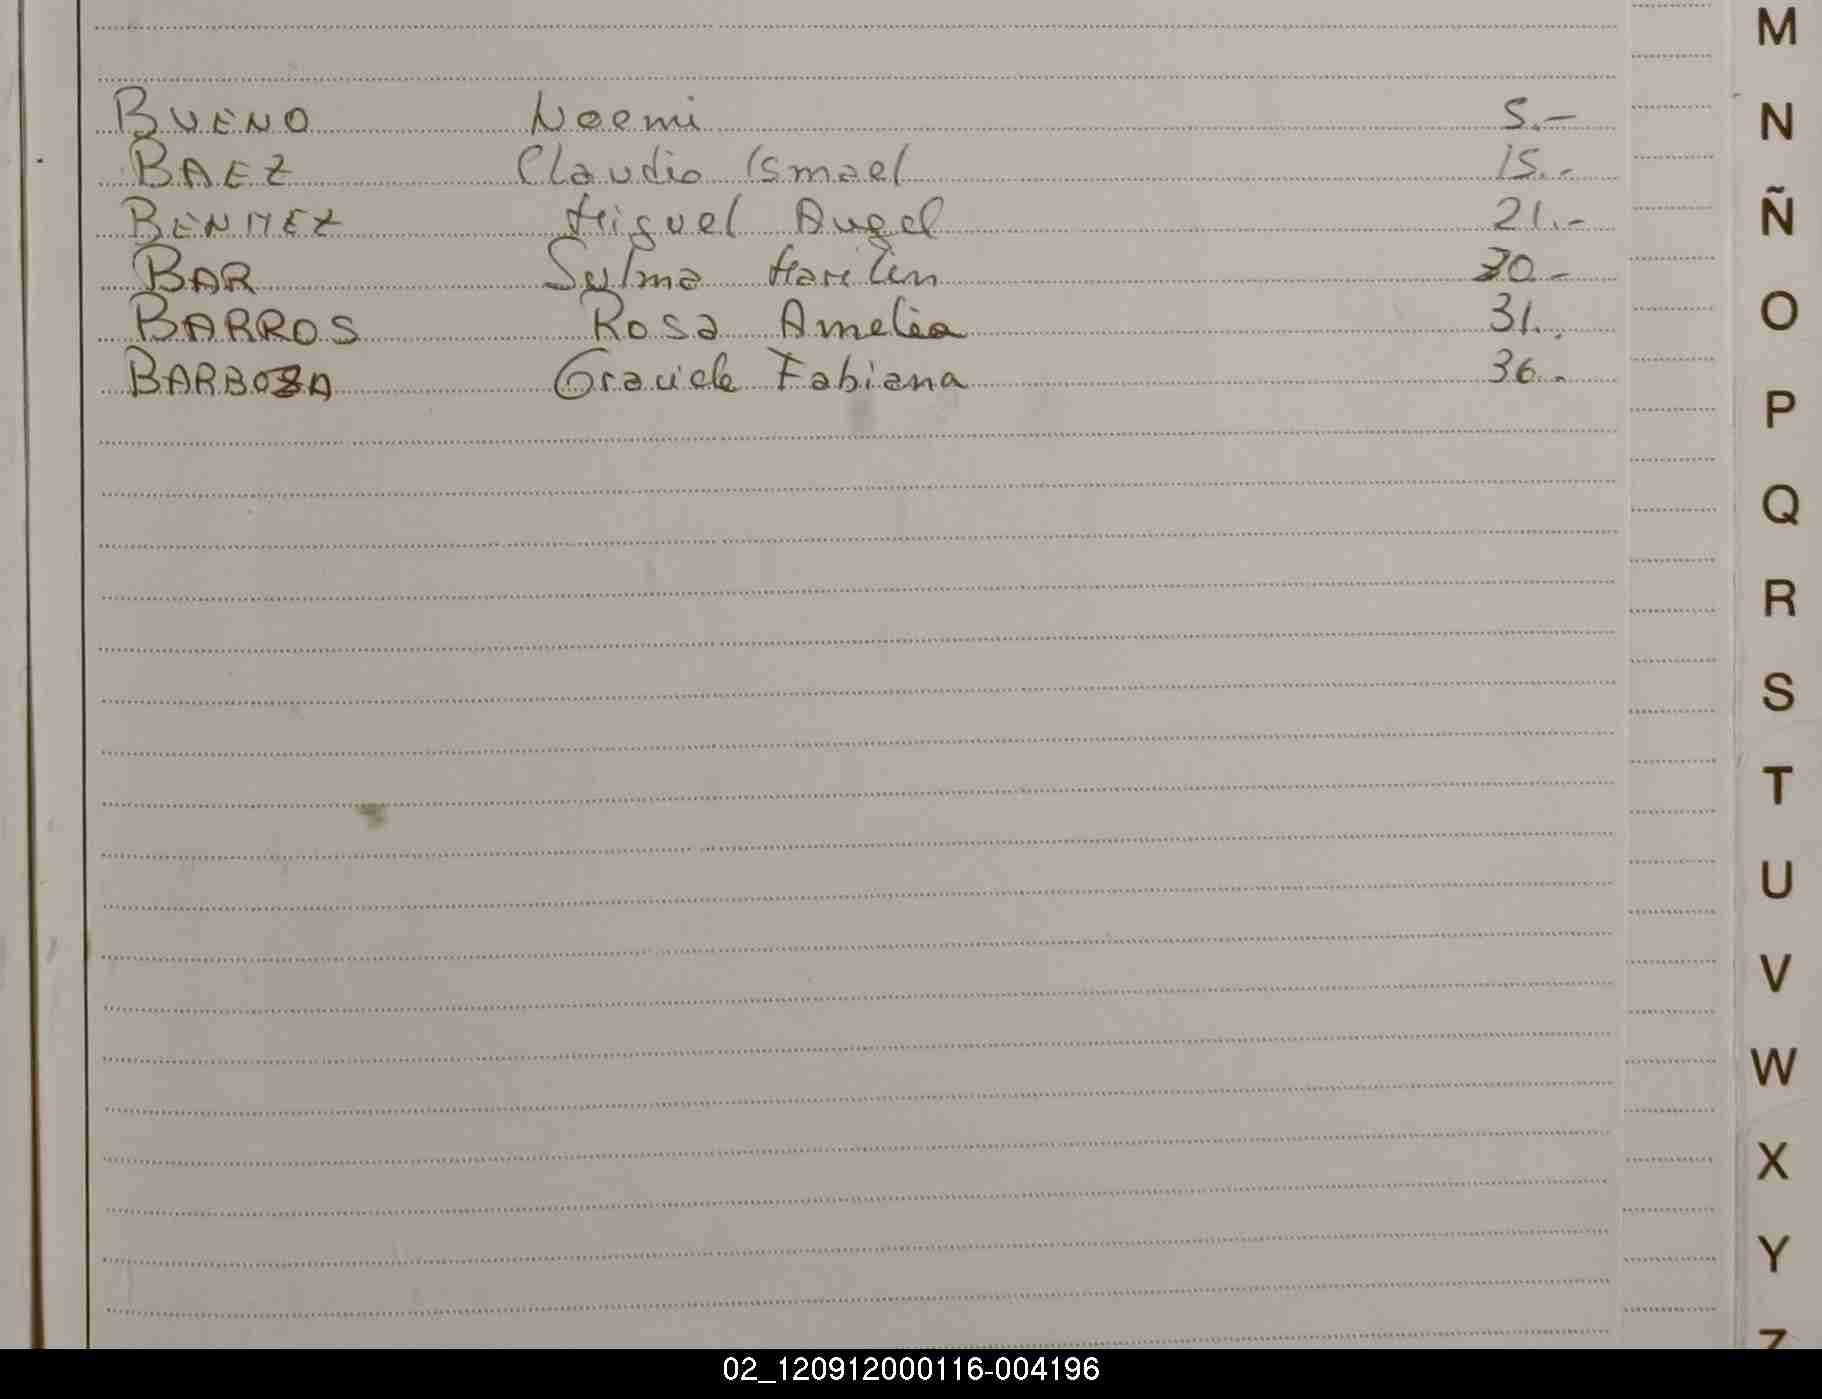 BUENO Noemi 5.-
BAEZ Claudio Ismael 15.-
BENITEZ Miguel Angel 21.-
BAR Sulma Marilin 30.-
BARROS Rosa Amelia 31.-
BARBOZA Graciela Fabiana 36.-
M
N
Ñ
O
P
Q
R
S
T
U
V
W
X
Y
Z
02_120912000116-004196